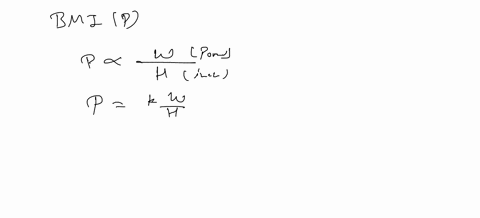 BMI (P)
P ∝ W (Pon) / H (inc)
P = k W / H